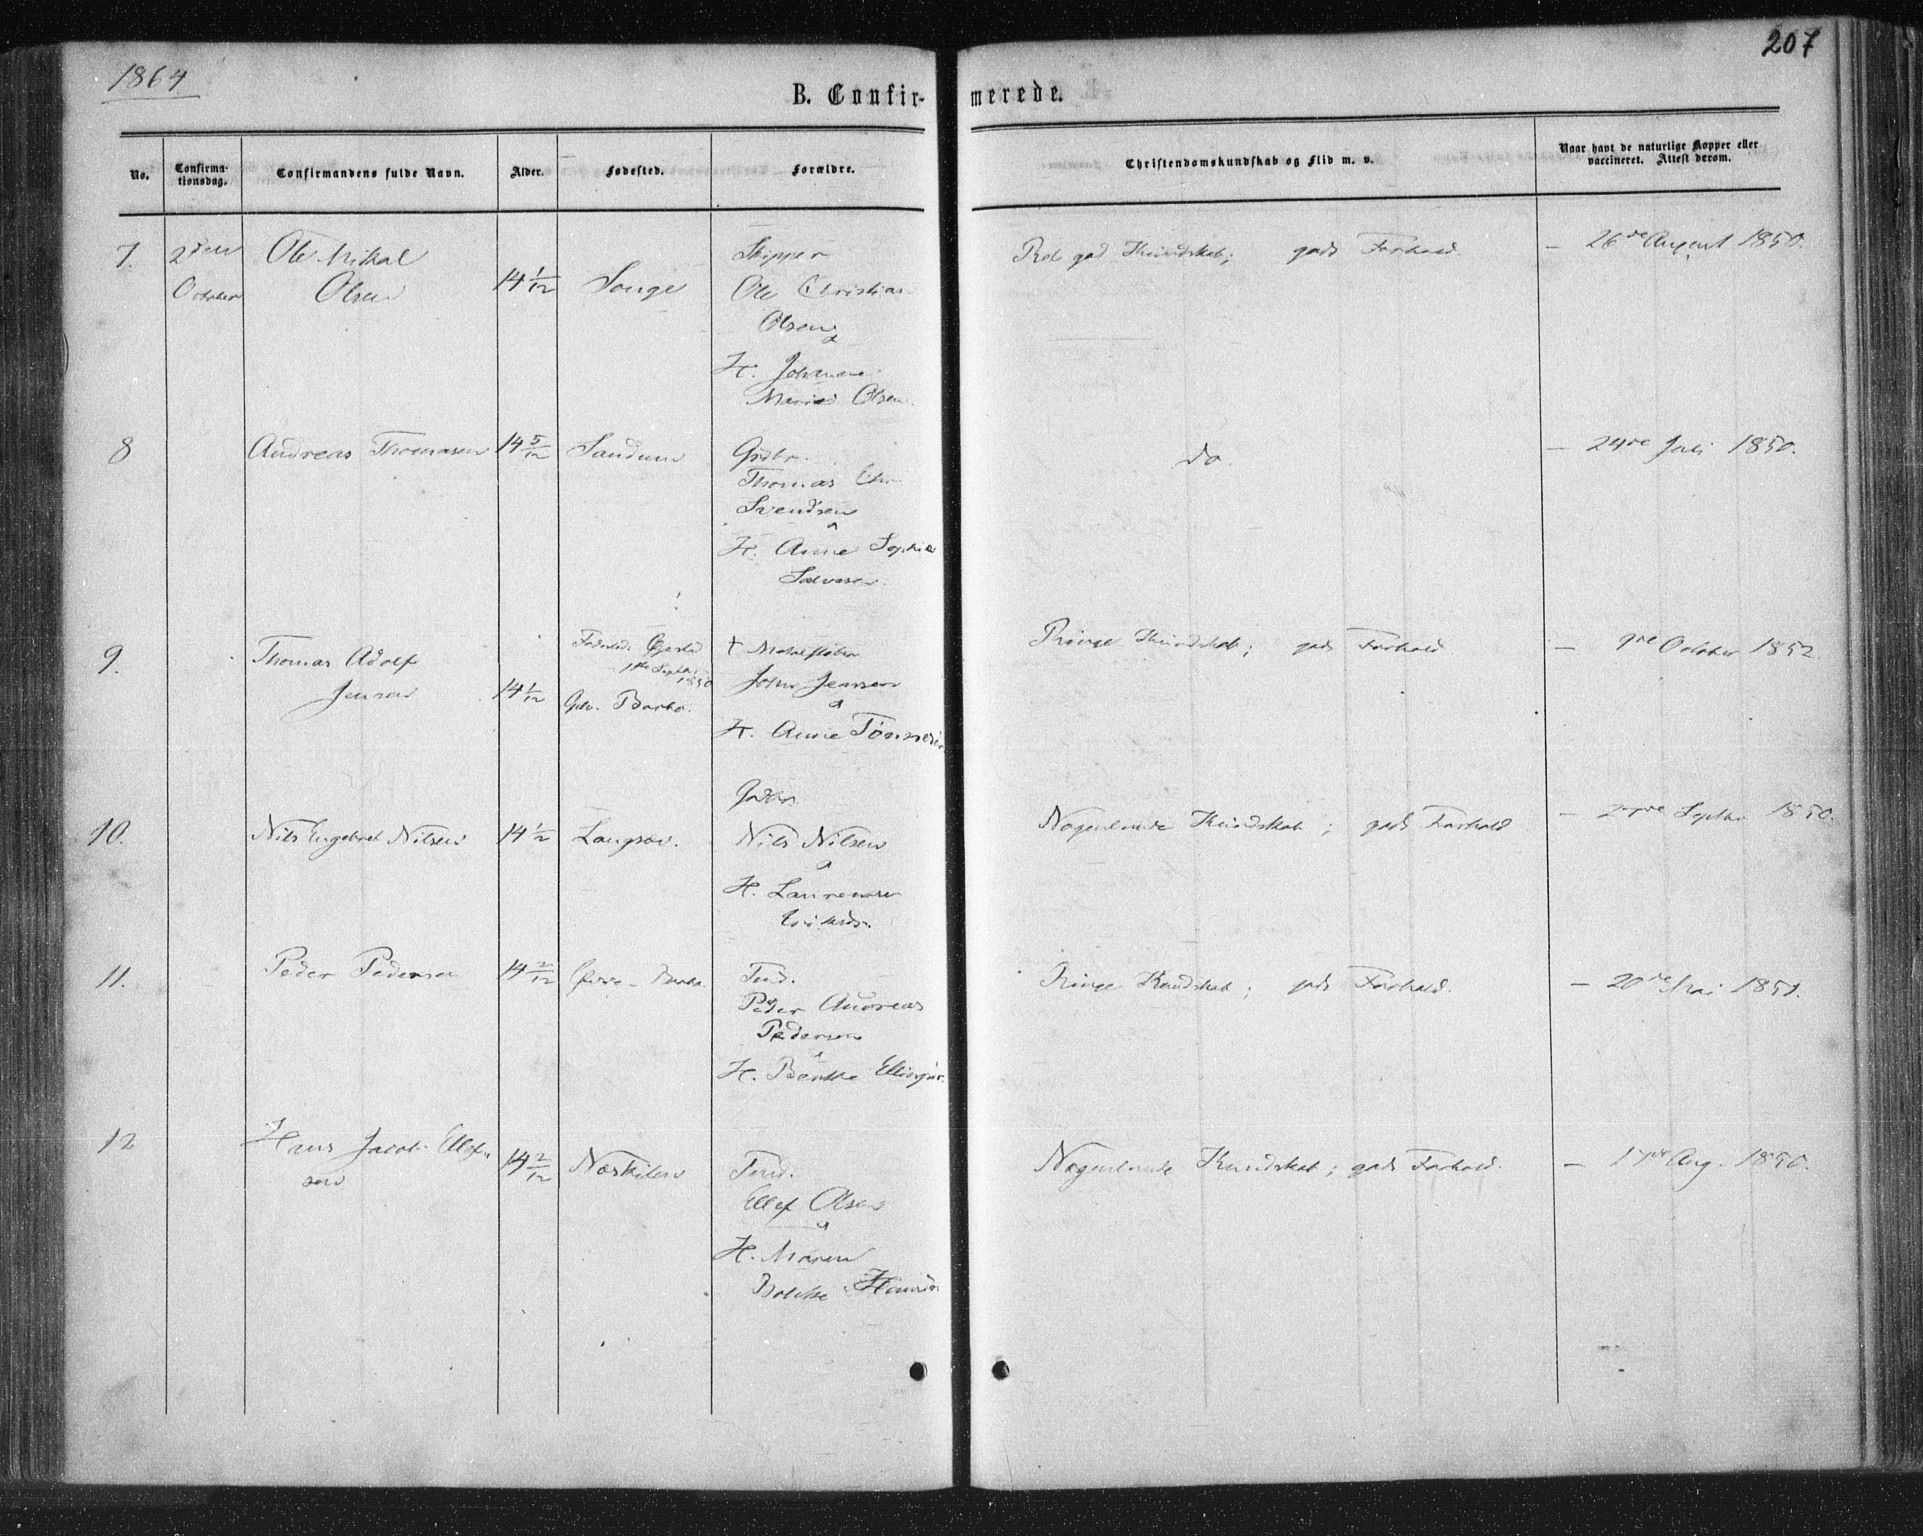 1864
207
B. Confir-merede.
No.
Confirma-
tionsdag.
Confirmandens fulde Navn.
Alder.
Fødested.
Forældre.
Christendomskundskab og Flid m. v.
Naar havt de naturlige Kopper eller
vaccineret. Attest derom.
7.
2den
October
Ole Mikal
Olsen
14 1/12
Songe
Skipper
Ole Christian
Olsen
H. Johanne
Maria Olsen
god Kundskab; gods Forhold.
— 26de August 1850.
8
Andreas Thomasen
14 5/12
Sandum
Thomas Chr
Svendsen
H. Anne Sophie
Salvesen
do.
— 24de Juli 1850.
9.
Thomas Adolf
Jensen
14 1/12
Barbo.
†
John Jensen
H. Anne
Ringe Kundskab; gods Forhold
— 9de October 1852.
10.
Nils Engebret Nilsen
14 1/2
Langsæv.
Nils Nilsen
H.
Nogenlunde Kundskab; gods Forhold
Septbr 1850.
11.
Peder Pedersen
14 2/12
Tmd.
Peder Andreas
Pedersen
H. Berthe
Ringe Kundskab; gods Forhold.
— 20de Mai 1851.
12
Hans Jacob Ellef-
sen
14 2/12
Neskilen
Tmd.
Ellef Olsen
H. Maren
Nogenlunde Kundskab; gods Forhold.
— 17de Aug. 1850.